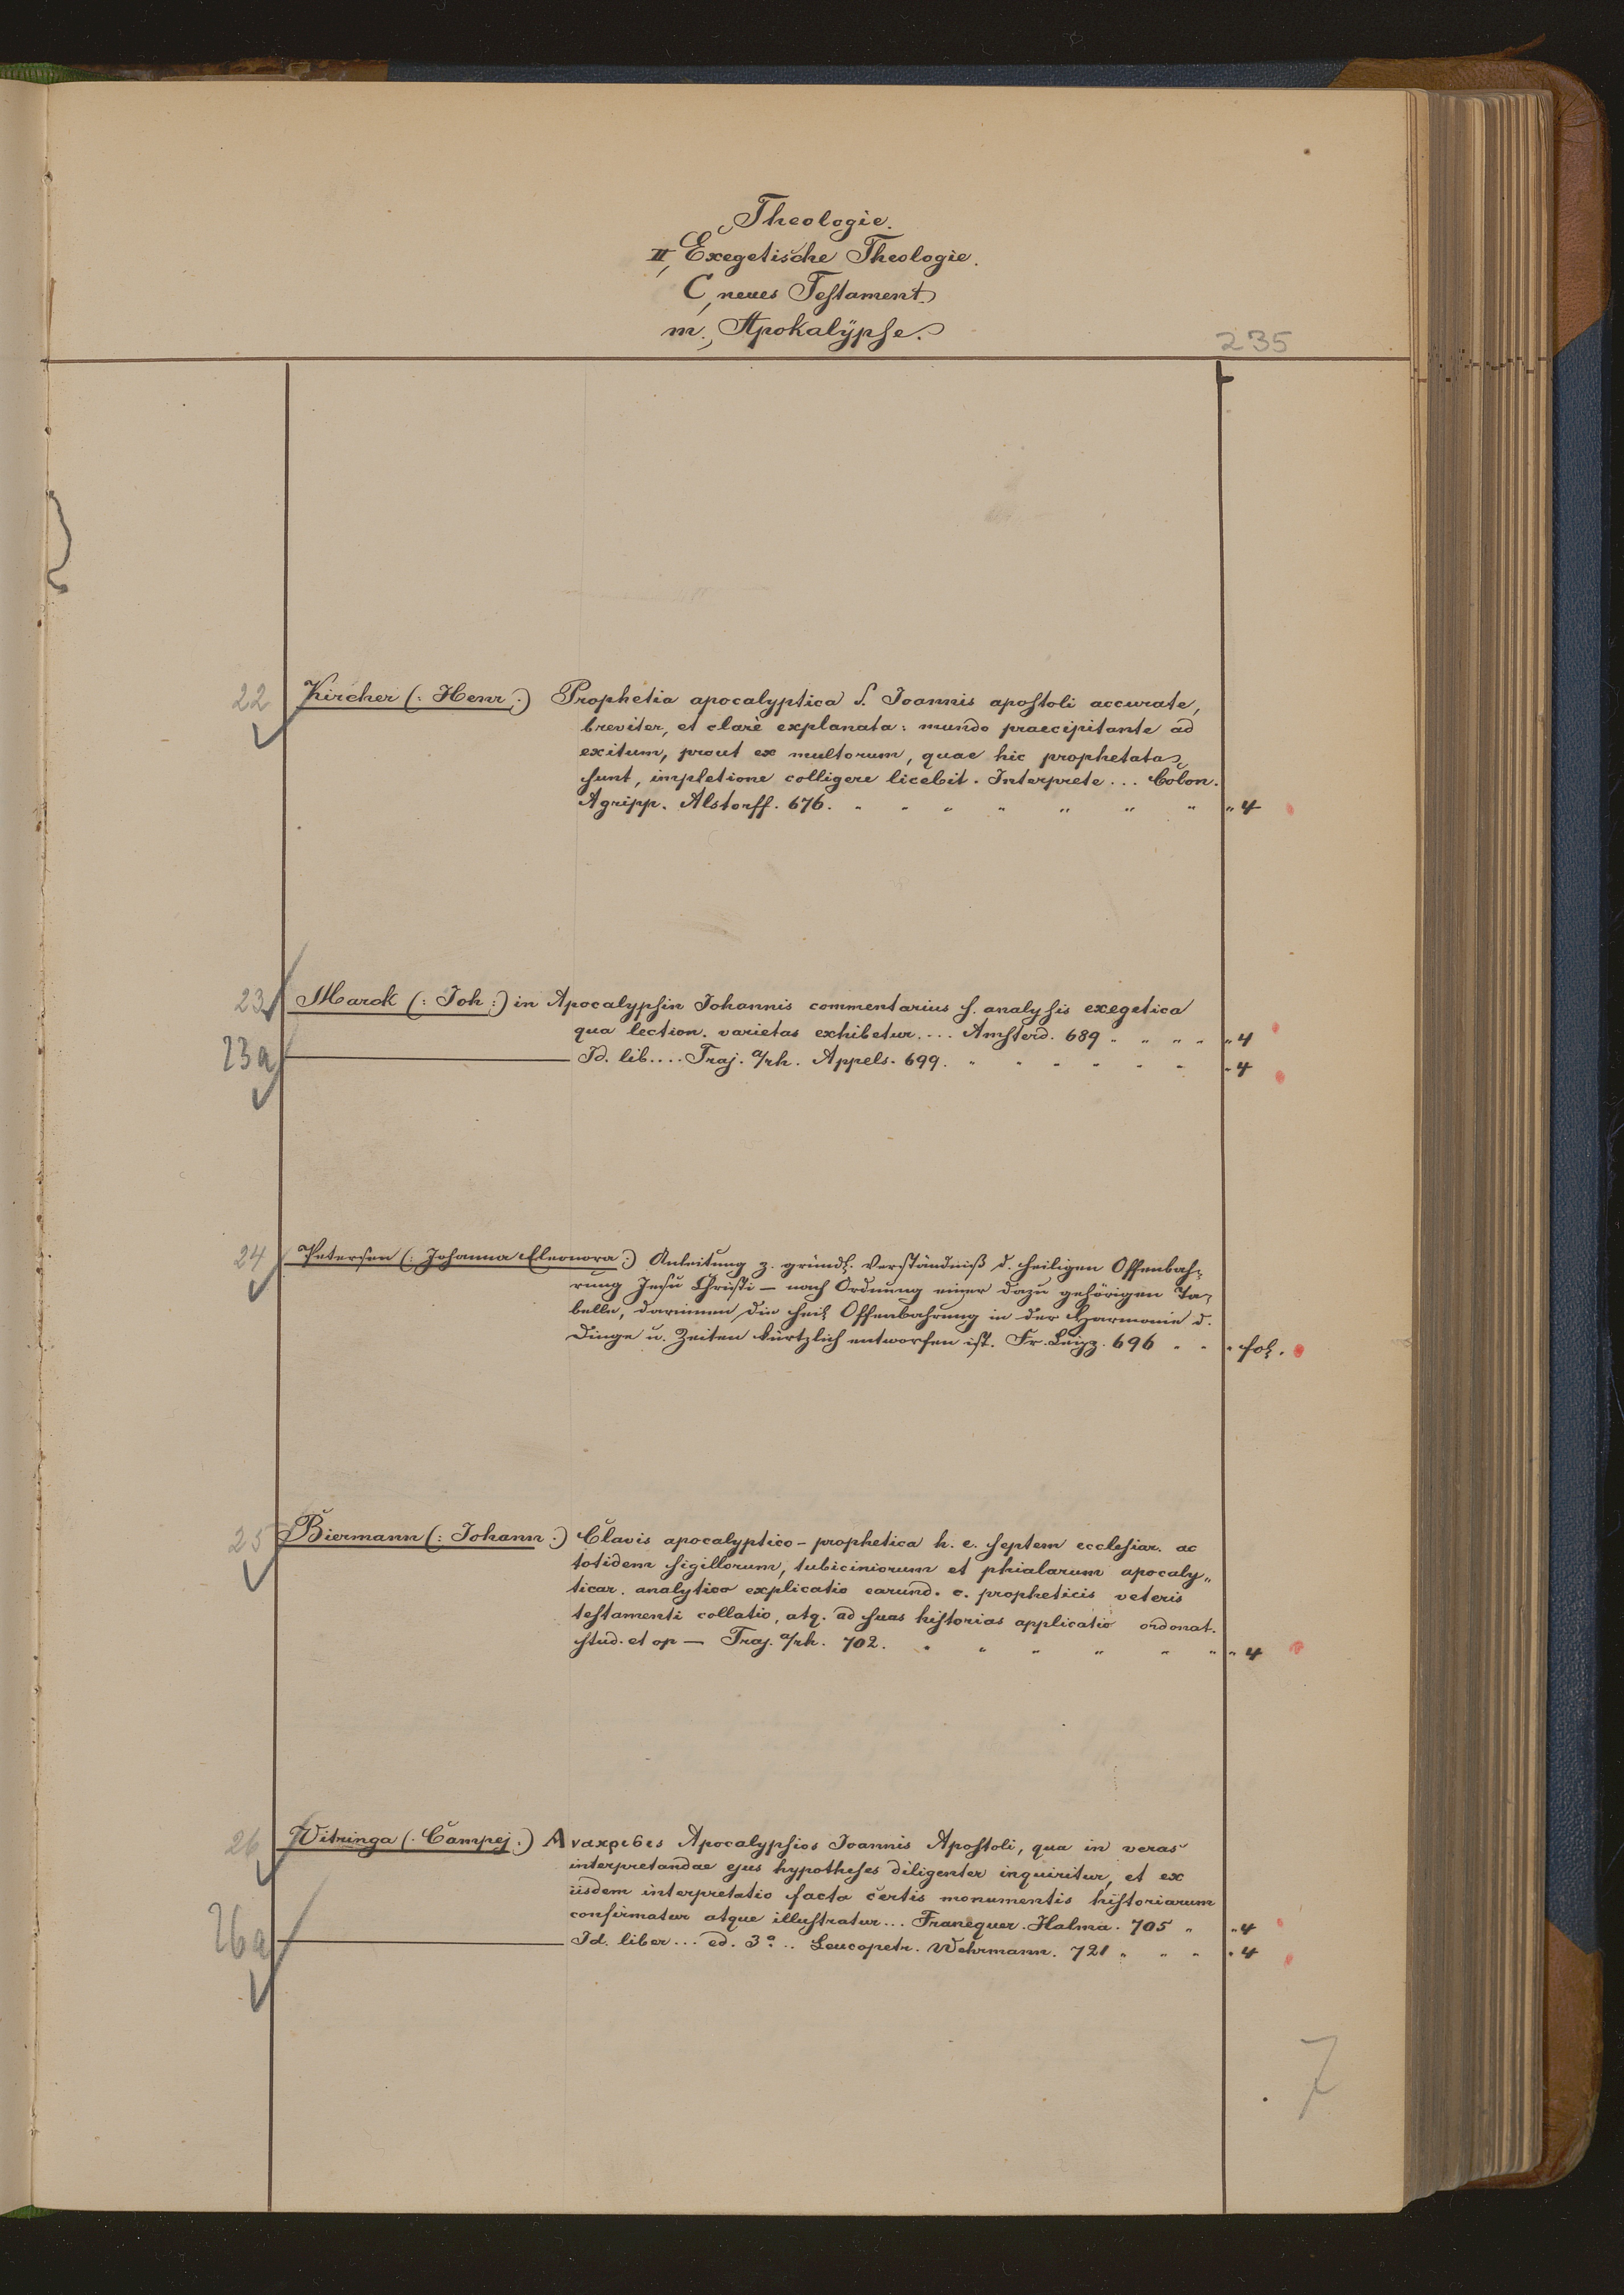 Theologie.
II, Exegetische Theologie.
C, neues Testament.
m., Apokalÿpse.
235
22 Kircher (: Henr :) Prophetia apocalyptica S. Joannis apostoli accurate,
breviter, et clarè explanata: mundo praecipitante ad
exitum, prout ex multorum, quae hic prophetata
sunt, impletione colligere licebit. Interprete ... Colon.
Agripp. Alstorff. 676. " " " " " " " " 4
23 Marck (: Joh :) in Apocalypsin Johannis commentarius s. analysis exegetica
qua lection. varietas exhibetur.... Amsterd. 689 " " " " " 4
23a Id. lib.... Traj. a/rh. Appels. 699. " " " " " " " 4
24 Petersen (: Johanna Eleonora :) Anleitung z. gründl. Verständniß d. heiligen Offenbah-
rung Jesu Christi — nach Ordnung einer dazu gehörigen Ta-
belle, darinnen die heil. Offenbahrung in der Harmonie d.
Dinge u. Zeiten kürtzlich entworfen ist. Fr. Leipz. 696 " " " fol.
25 Biermann (: Johann :) Clavis apocalyptico-prophetica h. e. septem ecclesiar. ac
totidem sigillorum, tubiciniorum et phialarum apocaly„
ticar. analytico explicatio earund. c. propheticis veteris
testamenti collatio, atq. ad suas historias applicatio ordonat.
stud. et op — Traj. a/rh. 702. " " " " " " " 4
26 Vitringa (: Campej :) Αναχρισις Apocalypsios Joannis Apostoli, qua in veras
interpretandae ejus hypotheses diligenter inquiritur, et ex
iisdem interpretatio facta certis monumentis historiarum
confirmatur atque illustratur... Franequer. Halma. 705 " " 4
26a Id. liber... ed. 3a .. Leucopetr. Wehrmann. 721 " " " " 4
7